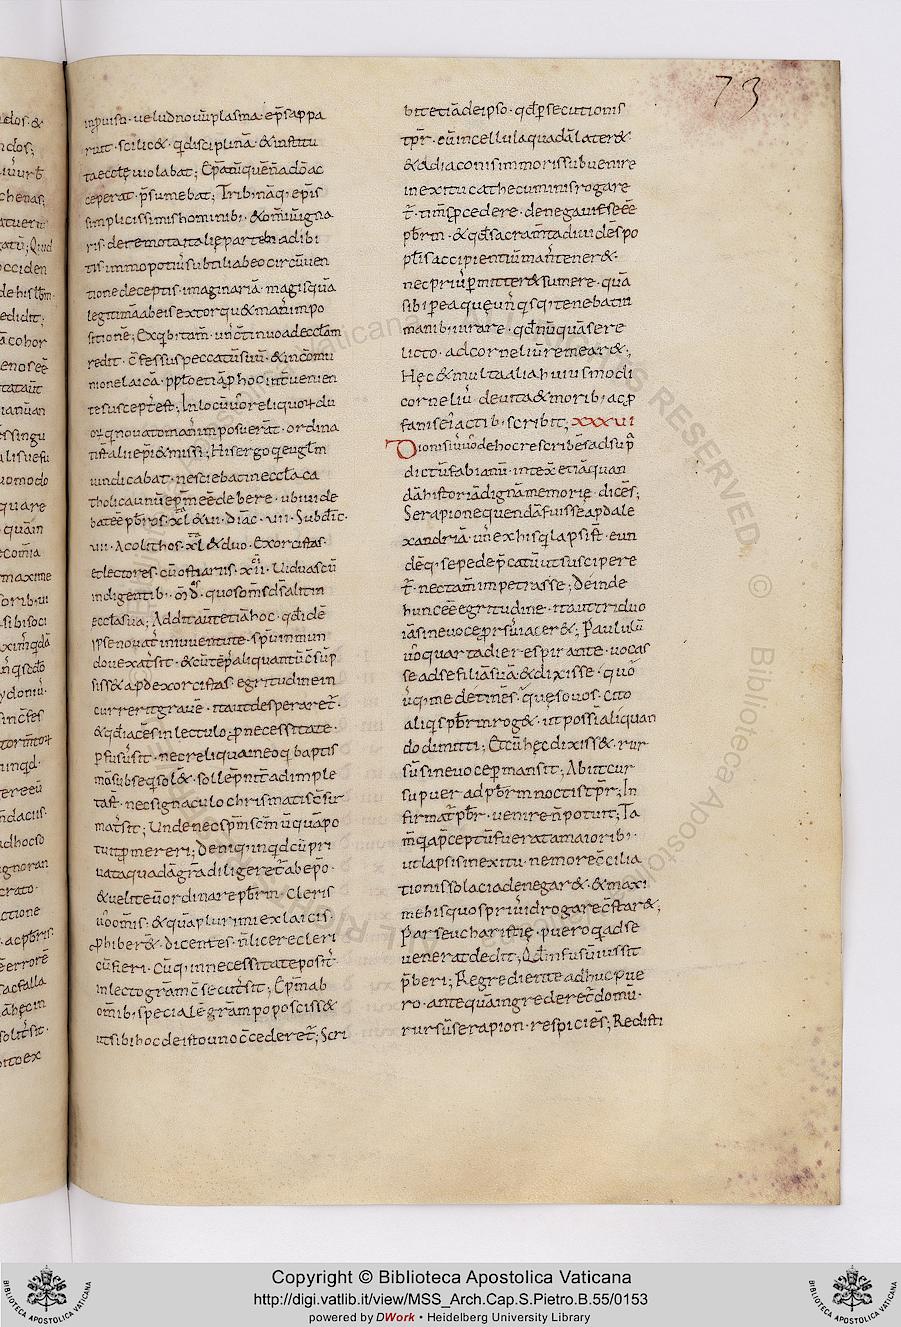 73
inpuiso· velud novū plasma· ep̄s appa
ruit· scilic& q̄ disciplinā· & institu
ta eccl̄e violabat; Ep̄atū quē n̄ a dō ac
ceperat· p̄sumebat; Tribꝰ nāq; ep̄is
simplicissimis hominibꝰ· & omniū igna
ris· de remota italię parte adhibi
tis immo potiꝰ subtili ab eo circūven
tione deceptis· imaginariā· magisquā
legitimā ab eis extorqu& manꝰ impo
sitionē; Ex qꝰbꝰ tam̄· unꝰ c̄tinuo ad ecclām
rediit· c̄fessus peccatū suū· & in cōmu
nionē laicā· pp̄lo etiā ꝑ hoc int̄venien
te susceptꝰ est; In locū v̄o reliquoꝝ du
oꝝ q̄ novato manꝰ imposuerāt· ordina
ti st̄ alii ep̄i & missi; His ergo q̄ evgl̄m
vindicabat· nesciebat in eccl̄a ca
tholica unū ep̄m eē debere· ubi vide
bat eē p̄bros· xl̄ & vi· Diac̄· vii· Subdiac̄·
vii· Acolithos· xl & duo· Exorcistas·
et lectores· cū ostiariis· xii· Viduas cū
indigentibꝰ· ∞̄ d̄· quos om̄s d̄s alit in
eccl̄a sua; Addit autē etiā hoc· qđ idē
ipse novatꝰ in iuventute· sp̄u inmun
do vexatꝰ sit· & cū tēp̄ aliquantū c̄sūp
siss& ap̄d exorcistas· egritudinē in
currerit gravē· ita ut desperaret̄·
& qđ iacēs in lectulo ꝓ necessitate·
ꝑfusꝰ sit· nec reliqua in eo q̄ baptis
mū subseq̄ sol&· sollēpnit̄ adimple
ta st̄· nec signaculo chrismatis c̄sū
matꝰ sit; Unde nec sp̄m sc̄m ūquā po
tuit ꝓmereri; Deniq; inqđ cū p̄ri
vata quadā grā diligeret̄ ab ep̄o·
& vellet eū ordinare p̄brm· Cleris
v̄o om̄is· & quā plurimi ex laicis·
ꝓhiber&· dicentes· n̄ licere cleri
cū fieri· Cū q̄ in necessitate positꝰ·
in lecto grām c̄secutꝰ sit; Ep̄m ab
om̄ibꝰ· specialē grām poposciss&
ut sibi hoc de isto uno c̄cederet̄; Scri
bit etiā de ipso· qđ ꝑsecutionis
tp̄r· cū in cellula quadā later&
& a diaconis immoris subvenire
in exitu cathecuminis rogare
t̄· tim̄s ꝓcedere· denegavit se eē
p̄brm· & qđ sacramta dividēs po
pl̄is accipientiū manꝰ tener&·
nec priꝰ ꝑmitter& sumere· quā
sibi ꝑ ea quę unꝰq̄sq; tenebat in
manibꝰ iurare· qđ nūquā se re
licto· ad corneliū remear&;
Hęc & multa alia huiusmodi
corneliꝰ· de vita & moribꝰ ac ꝓ
fanis ei actibꝰ scribit; XXXVI
Dionisiꝰ v̄o de hoc rescribēs ad sup̄
dictū fabianū· intex̄ etiā quan
dā historiā dignā memorię· dicēs;
Serapionē quendā fuisse ap̄d ale
xandriā· unꝰ ex his q̄ lapsi st̄· eun
dēq; sepe de p̄catū ut suscipere
t̄· nec tam̄ impetrasse; Deinde
hunc eē egritudine· ita ut triduo
iā sine voce ꝓrsus iacer&; Paululū
v̄o quarta die respirante· vocas
se ad se filiā suā· & dixisse· quo
usq; me detinēs· quęso vos· cito
aliqs p̄brm rog&· ut possim aliquan
do dimitti; Et cū hęc dixiss&· rur
sū sine voce ꝑmansit; Abiit cur
su puer ad p̄brm noctis tp̄r; In
firmat̄ p̄br· venire n̄ potuit; Ta
m̄ q̄a p̄ceptū fuerat a maioribꝰ·
ut lapsis in exitu· nemo rec̄cilia
tionis solacia denegar&· & maxi
me his quos priꝰ id rogare c̄star&;
Parse eucharistię· puero q̄ ad se
venerat dedit; Qđ infusū iussit
p̄beri; Regrediente adhuc pue
ro· antequā ingrederet̄ domū·
rursū serapion· respiciēs; Redisti
Copyright © Biblioteca Apostolica Vaticana
http://digi.vatlib.it/view/MSS_Arch.Cap.S.Pietro.B.55/0153
powered by DWork · Heidelberg University Library